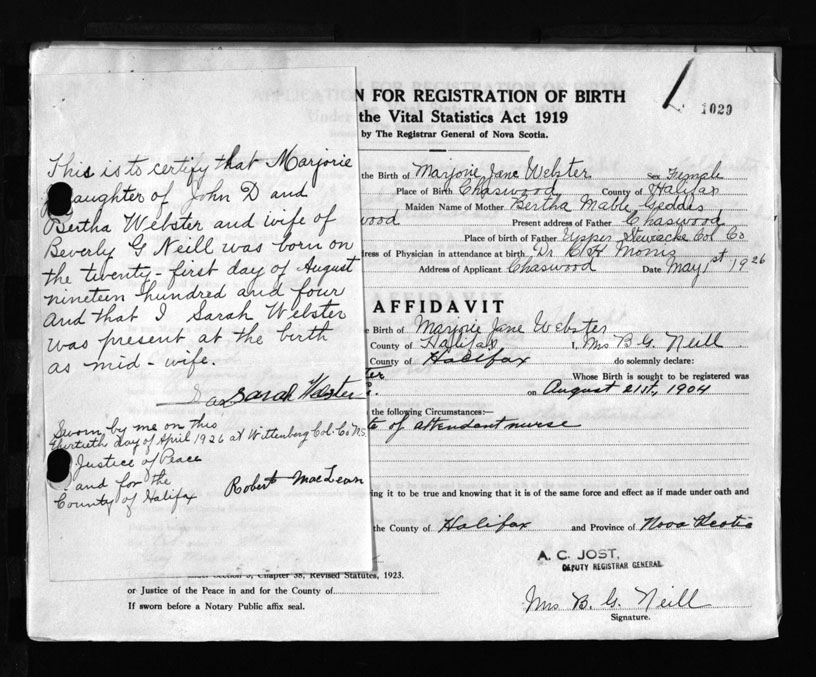 1029
N FOR REGISTRATION OF BIRTH
the Vital Statistics Act 1919
by The Registrar General of Nova Scotia.
This is to certify that Marjorie
daughter of John D and
Bertha Webster and wife of
Beverly G Neill was born on
the twenty-first day of August
nineteen hundred and four
And that I Sarah Webster
was present at the birth
as mid-wife.
Sarah Webster
Sworn by me on this
thirtieth day of April 1926 at Wittenberg Col. Co N.S.
Justice of Peace
and for the
County of Halifax
Robert MacLean
the Birth of Marjorie Jane Webster Sex Female
Place of Birth Chaswood County of Halifax
Maiden Name of Mother Bertha Mable Geddes
wood Present address of Father Chaswood
Place of birth of Father Upper Stewacke Col Co
ress of Physician in attendance at birth Dr
Address of Applicant Chaswood Date May 1st 1926
AFFIDAVIT
e Birth of Marjorie Jane Webster
County of Halifax I, Mrs B G. Neill
County of Halifax do solemnly declare:
ter Whose Birth is sought to be registered was
on August 21st, 1904
the following Circumstances:—
te of attendant nurse
ing it to be true and knowing that it is of the same force and effect as if made under oath and
the County of Halifax and Province of Nova Scotia
A. C. JOST,
DEPUTY REGISTRAR GENERAL
under Section 5, Chapter 38, Revised Statutes, 1923.
or Justice of the Peace in and for the County of
If sworn before a Notary Public affix seal.
Mrs B. G. Neill
Signature.